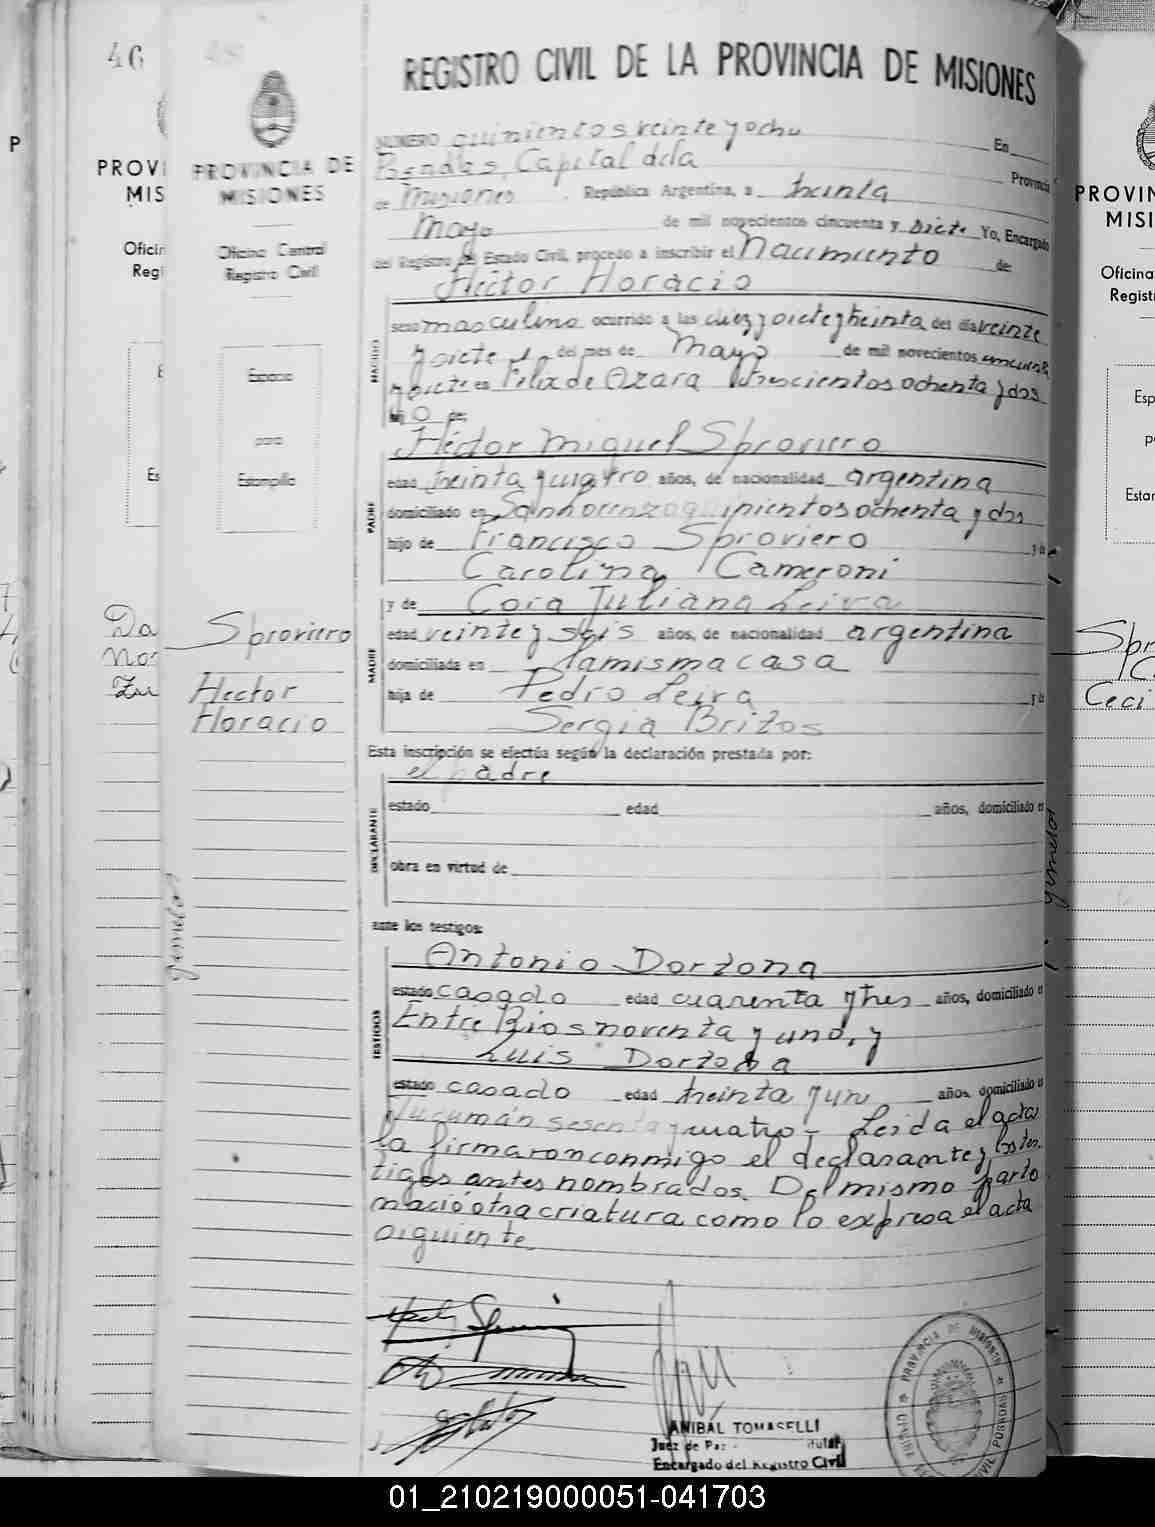 46
P
PROVI
MIS
Oficin
Regi
E
Es
Da
Nos
Zu
PROVINCIA DE
MISIONES
Oficina Central
Registro Civil
Espacio
para
Estampilla
Sproviero
Hector
Horacio
gemelos
REGISTRO CIVIL DE LA PROVINCIA DE MISIONES
NUMERO quinientos veinte y ocho En
Posadas, Capital de la Provincia
de Misiones República Argentina, a treinta
Mayo de mil novecientos cincuenta y siete Yo, Encargado
del Registro del Estado Civil, procedo a inscribir el Nacimiento de:
Héctor Horacio
NACIDO
sexo masculino ocurrido a las diez y siete y treinta del día veinte
y siete del mes de Mayo de mil novecientos cincuenta
y siete en Félix de Azara trescientos ochenta y dos
hijo de:
Héctor Miguel Sproviero
PADRE
edad treinta y cuatro años, de nacionalidad argentina
domiciliado en San Lorenzo quinientos ochenta y dos
hijo de Francisco Sproviero y de
Carolina Cameroni
y de Cora Juliana Leiva
MADRE
edad veinte y seis años, de nacionalidad argentina
domiciliada en la misma casa
hija de Pedro Leiva y de
Sergia Britos
Esta inscripción se efectúa según la declaración prestada por:
el padre
DECLARANTE
estado edad años, domiciliado e
obra en virtud de
ante los testigos:
Antonio Dortona
TESTIGOS
estado casado edad cuarenta y tres años, domiciliado e
Entre Rios noventa y uno, y
Luis Dortona
estado casado edad treinta y un años, domiciliado e
Tucumán sesenta y cuatro - Leida el acta
la firmaron conmigo el declarante y los tes-
tigos antes nombrados. Del mismo parto
nació otra criatura como lo expresa el acta
siguiente.
ANIBAL TOMASELLI
Juez de Paz Titular
Encargado del Registro Civil
PROVINCIA DE MISIONES
PROVIN
MISI
Oficina
Regist
Esp
p
Estar
Spr
C
Ceci
gemelos
01_210219000051-041703